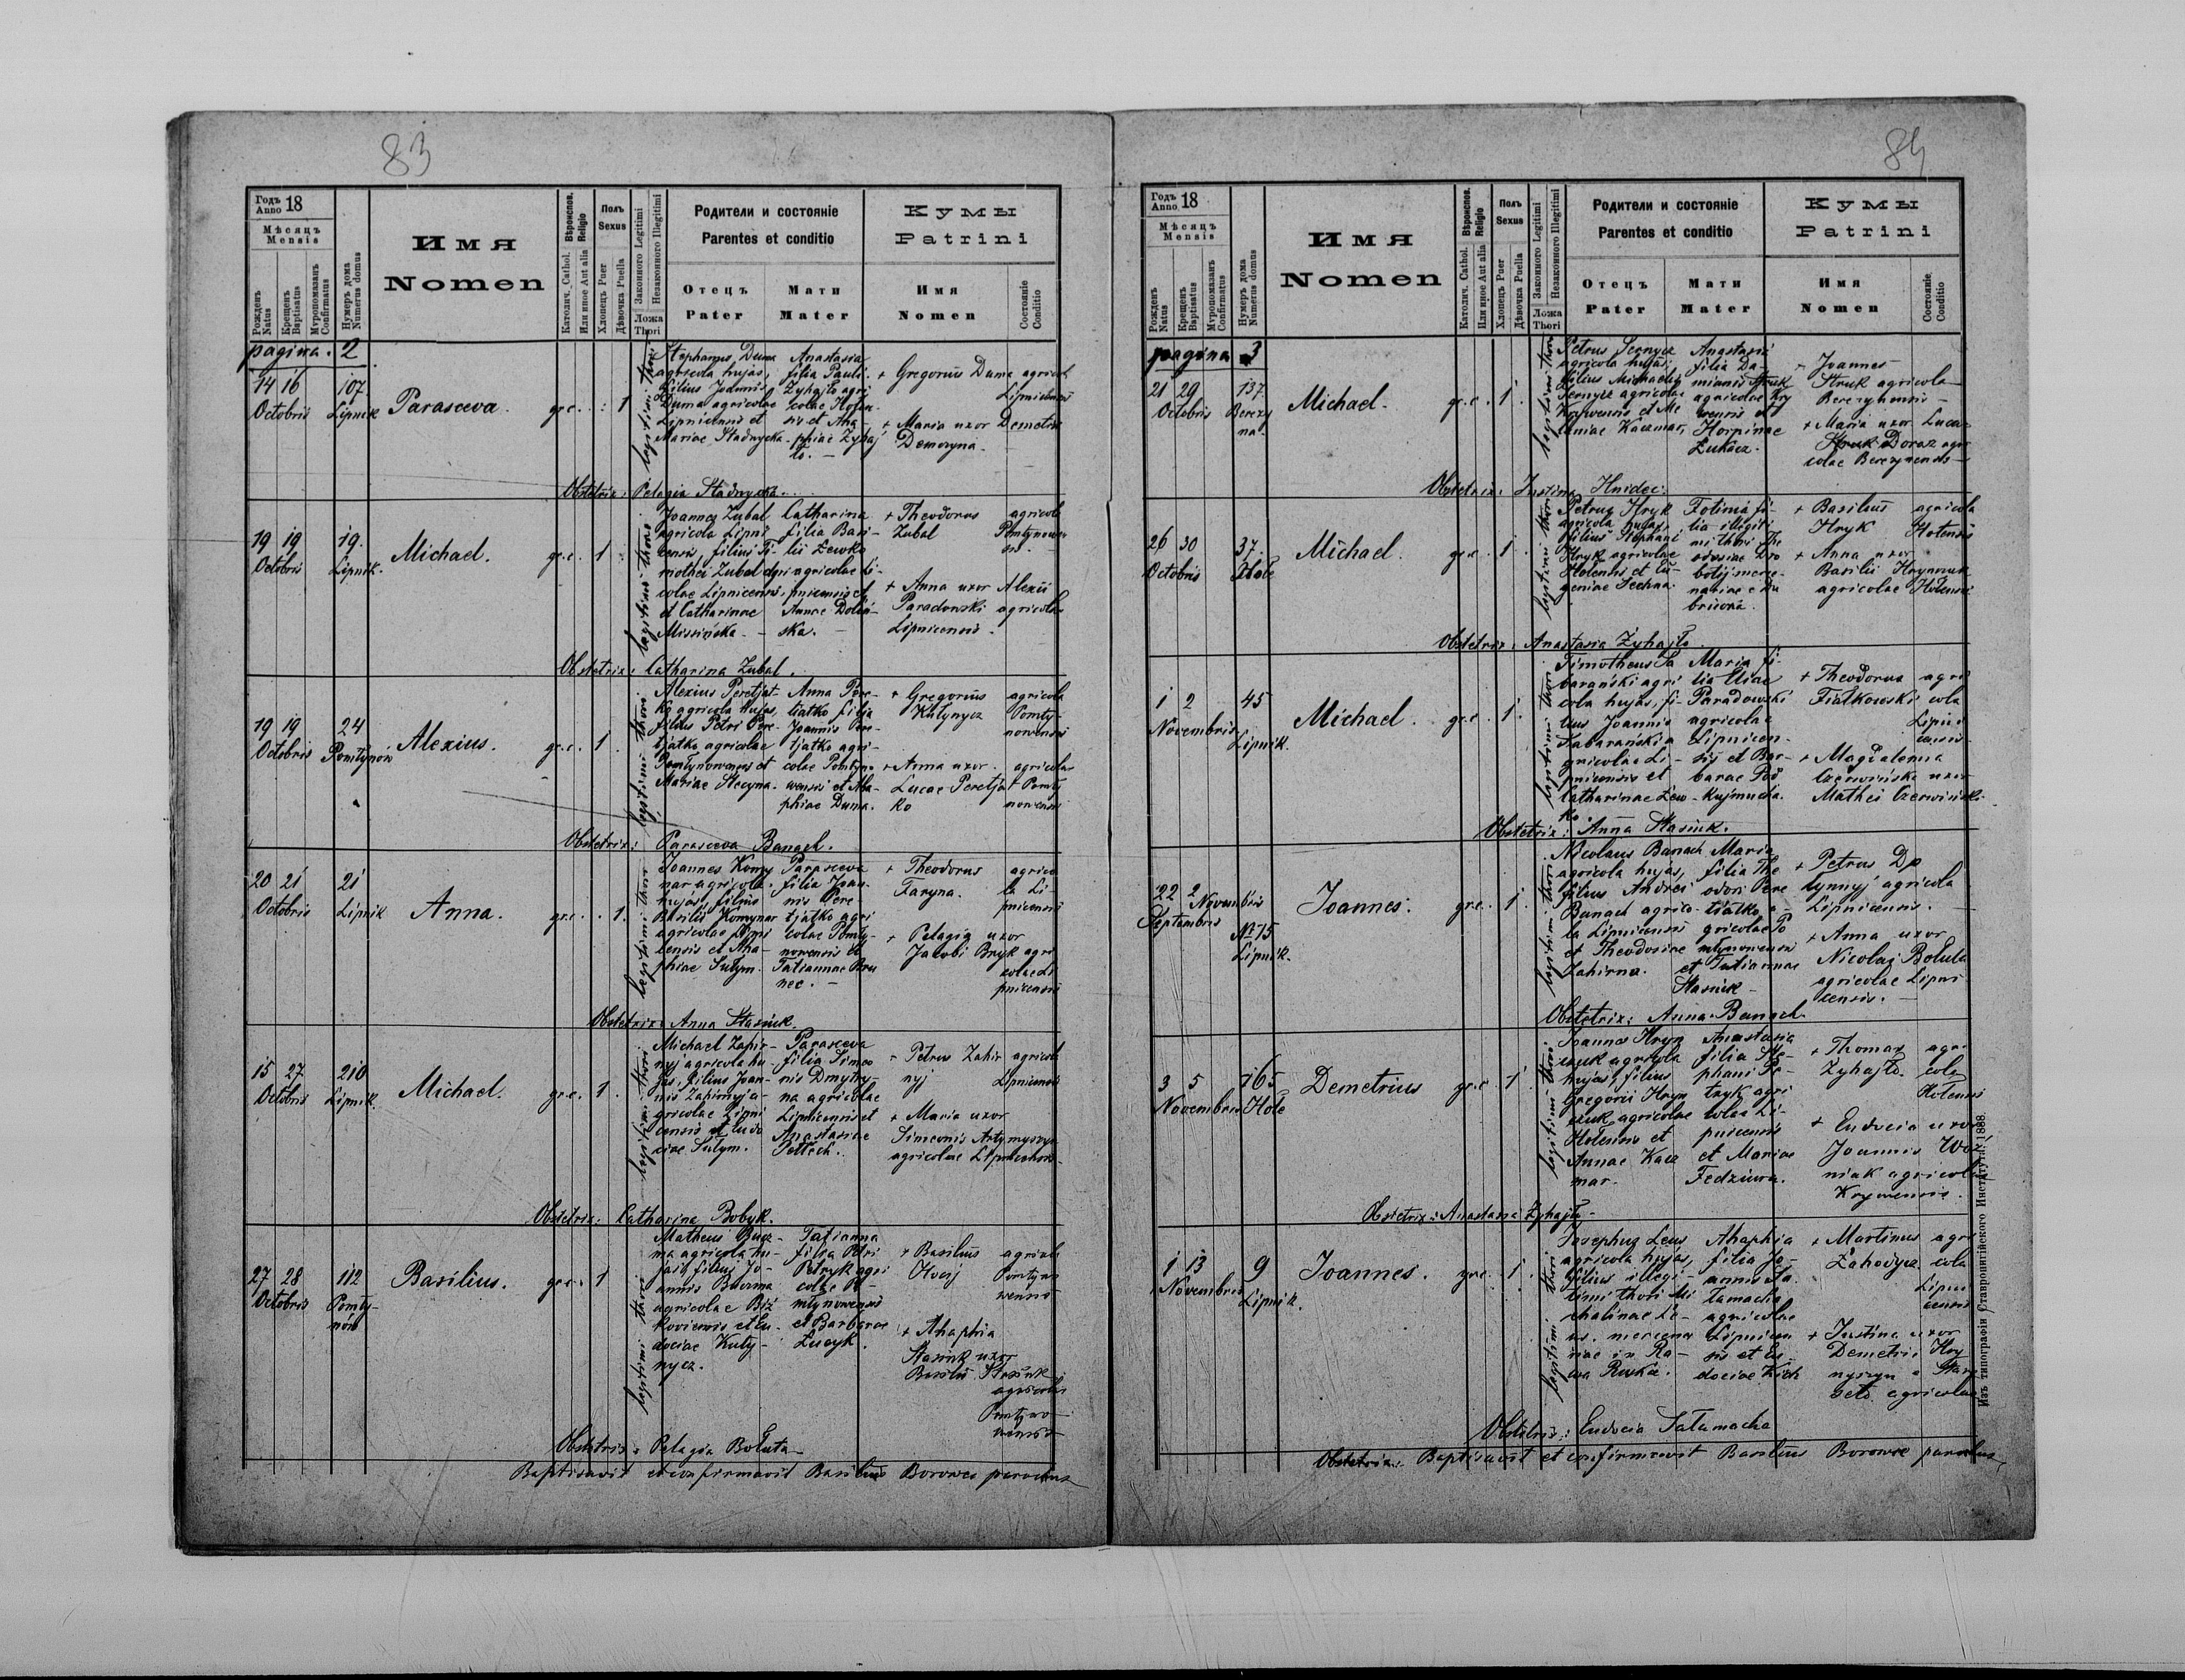 83
Годъ Anno 18
Мѣсяцъ
Mensis
Рожденъ Natus
Крещенъ Baptisatus
Мѵропомазанъ Confirmatus
Нумеръ дома
Numerus domus
Имя
Nomen
Вѣроиспов.
Religio
Католич. Cathol.
Или иное Aut alia
Полъ
Sexus
Хлопецъ Puer
Дѣвочка Puella
Законного Legitimi
Незаконного Illegitimi
Ложа
Thori
Родители и состояніе
Parentes et conditio
Отецъ
Pater
Мати
Mater
Кумы
Patrini
Имя
Nomen
Состояніе
Conditio
pagina. 2
14 16 107
Octobris Lipnik
Parasceva. gr.c. 1
legitimi thori
Stephanus Duma
agricola hujas,
filius Joannis
Duma agricolae
Lipnicensis et
Mariae Stadnycka
Anastasia
filia Pauli
Zyhajło agri
colae Hoten
sis et Aha
phiae Zyhaj
ło. –
+ Gregorius Duma agricola
Lipnicensis
+ Maria uxor Demetrii
Demczyna.
Obstetrix: Pelagia Stadnycka.
19 19 19.
Octobris Lipnik.
Michael. gr.c. 1
legitimi thori
Joannes Zubal
agricola Lipni
censis, filius Ti-
mothei Zubal agri
colae Lipnicensis
et Catharinae
Missińska. –
Catharina
filia Basi-
lii Lewko
agricolae Li-
pnicensis et
Annae Dolin-
ska. –
+ Theodorus agricola
Zubal Pomtynowen
sis.
+ Anna uxor Alexii
Paradowski agricolae
Lipnicensis.
Obstetrix: Catharina Zubal.
19 19 24
Octobris Pomtynów
Alexius. gr.c. 1
legitimi thori
Alexius Peretjat-
ko agricola hujas,
filius Petri Pere-
tjatko agricolae
Pomtynowensis et
Mariae Stecyna.
Anna Pere-
tiatko filia
Joannis Pere-
tjatko agri-
colae Pomtyno
wensis et Aha-
phiae Duma.
+ Gregorius agricola
Kutynycz Pomty-
nowensis
+ Anna uxor agricolae
Lucae Peretjat Pomty
ko nowensis
Obstetrix: Parasceva Banach.
20 21 21
Octobris Lipnik
Anna. gr.c. 1.
legitimi thori
Joannes Komy
nar agricola
hujas, filius
Basilii Komynar
agricolae Lipni
censis et Aha-
phiae Sułym.
Parasceva
filia Joan-
nis Pere-
tjatko agri
colae Pomty-
nowensis et
Tatiannae Bru
nec. –
+ Theodorus agrico
Faryna. la Li-
pnicensis
+ Pelagia uxor
Jacobi Bryk agri
colae Li
pnicensis
Obstetrix: Anna Stasiuk.
15 27 210
Octobris Lipnik.
Michael. gr.c. 1.
legitimi thori
Michael Zapir-
nyj agricola hu-
jas, filius Joan-
nis Zapirnyj a-
gricolae Lipni
censis et Eudo
ciae Sułym.
Parasceva
filia Simeo
nis Dmytry-
na agricolae
Lipnicensis et
Anastasiae
+ Petrus Zahir agricola
nyj Lipnicensis
+ Maria uxor
Simeonis Artymyszyn
agricolae Lipnicensis
Obstetrix: Catharina Bobyk.
27 28 112
Octobris Pomty-
nów
Basilius. gr.c. 1
legitimi thori
Matheus Bucz-
ma agricola hu-
jas, filius Jo-
annis Buczma
agricolae
et Eu-
dociae Kuty-
nycz.
Tatianna
filia Petri
Petryk agri
colae Po-
mtynowensis
et Barbarae
Łucyk.
+ Basilius agricola
Pomtyno
wensis
+ Ahaphia
Stasiuk uxor
Basilii Stasiuk
agricolae
Pomtyno-
wensis
Obstetrix: Pelagia Bołuta
Baptisavit et confirmavit Basilius Borowec parochus
84
Годъ Anno 18
Мѣсяцъ
Mensis
Рожденъ Natus
Крещенъ Baptisatus
Мѵропомазанъ Confirmatus
Нумеръ дома
Numerus domus
Имя
Nomen
Вѣроиспов.
Religio
Католич. Cathol.
Или иное Aut alia
Полъ
Sexus
Хлопецъ Puer
Дѣвочка Puella
Законного Legitimi
Незаконного Illegitimi
Ложа
Thori
Родители и состояніе
Parentes et conditio
Отецъ
Pater
Мати
Mater
Кумы
Patrini
Имя
Nomen
Состояніе
Conditio
pagina 3
21 29 137
Octobris Berezy
na.
Michael. gr.c. 1.
legitimi thori
Petrus Sernycz
agricola hujas,
filius Michaelis
Sernycz agricolae
Krywensis et Me
laniae Kaczmar,
Anastasia
filia Da-
mianis Struk
agricolae Kry
wensis et
Horpinae
Łukacz.
+ Joannes
Struk agricola
Berezynensis –
+ Maria uxor Lucae
Doraz agri
colae Berezynensis
Obstetrix: Justina Hnidec.
26 30 37.
Octobris Hołe
Michael. gr.c. 1
legitimi thori
Petrus Hryk
agricola hujas,
filius Stephani
Hryk agricolae
Hotensis et Eu-
geniae Sechna.
Fotinia fi-
lia illegiti
mi thori The
odosiae
merce-
nariae e Du
+ Basilius agricola
Hryk Hotensis
+ Anna uxor
Basilii Hrynczuk
agricolae Hotensis
Obstetrix: Anastasia Zyhajło.
1 2 45
Novembris Lipnik.
Michael. gr.c. 1.
legitimi thori
Timotheus Ta
barański agri
cola hujas, fi-
lius Joannis
Tabarański a
gricolae Li-
pnicensis et
Catharinae Lew-
ko.
Maria fi-
lia Eliae
Paradowski
agricolae
Lipnicen-
sis et Bar-
barae Pod
kujmucha.
+ Theodorus agri
Fiałkowski cola
Lipni
censis
+ Magdalenna
Czerwińska uxor
Mathei Czerwiński
Obstetrix: Anna Stasiuk.
22 2 Novembris
Septembris No 75
Lipnik.
Joannes. gr.c. 1.
legitimi thori
Nicolaus Banach
agricola hujas,
filius Andrei
Banach agrico-
la Lipnicensis
et Theodosiae
Zahirna.
Maria
filia The
odori Pere
tiatko a-
gricolae Po
mtynowensis
et Tatiannae
Stasiuk –
+ Petrus Do
łynnyj agricola
Lipnicensis.
+ Anna uxor
Nicolai Bołuta
agricolae Lipni
censis. –
Obstetrix: Anna Banach
3 5 165
Novembris Hołe
Demetrius gr.c. 1
legitimi thori
Joannes Hryn
czuk agricola
hujas, filius
Gregorii Hryn
czuk agricolae
Hotensis et
Annae Kacz
mar.
Anastasia
filia Ste-
phani Pe-
tryk agri
colae Li-
pnicensis
et Mariae
Fedziura.
+ Thomas agri
Zyhajło. cola
Hotensis
+ Eudocia uxor
Joannis Woź
niak agricolae
Krywensis.
Obstetrix: Anastasia Zyhajło –
1 13 9
Novembris Lipnik.
Joannes. gr.c. 1.
legitimi thori
Josephus Leus
agricola hujas,
filius illegi-
timi thori Mi
chalinae Le-
us. mercena
riae in Ra-
wa Ruska.
Ahaphia
filia Jo-
annis Ta
łamacha
agricolae
Lipnicen
sis et Eu-
dociae Kich
+ Martinus agri
Zahodycz cola
Lipni
censis
+ Justina uxor
Demetrii Hry
nyszyn e Stare
seło agricolae
Obstetrix: Eudocia Tałamacha
Obstetrix: Baptisavit et confirmavit Basilius Borowec parochus
Изъ типографіи Ставропигійского Института. 1888.